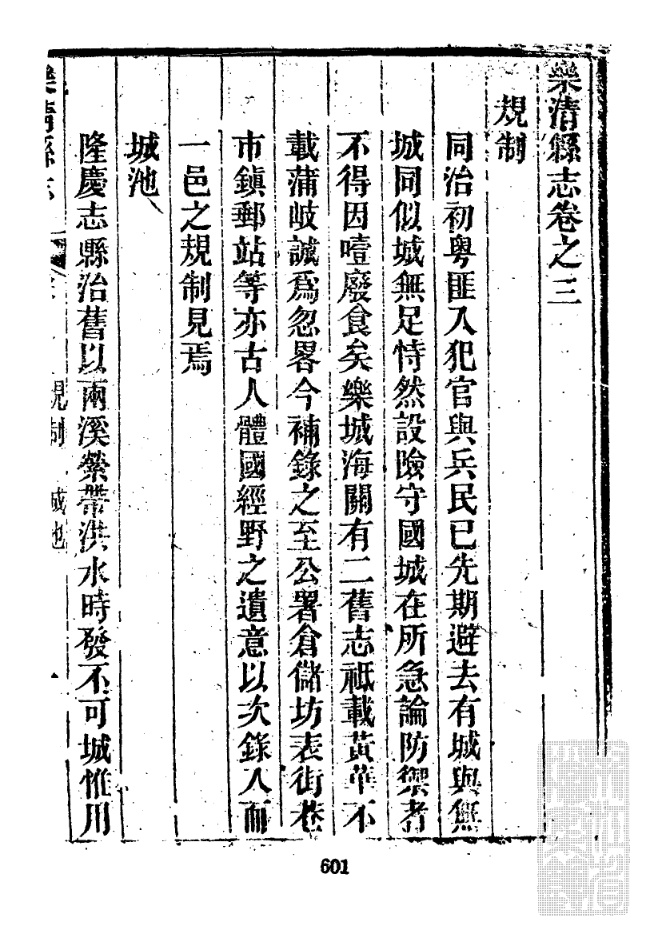 樂清縣志卷之三
規制
同治初粤匪入犯官與兵民已先期避去有城與無
城同似城無足恃然設險守國城在所急論防禦者
不得因噎廢食矣樂城海關有二舊志祗載黃華不
載蒲岐誠爲忽畧今補錄之至公署倉儲坊表街巷
市鎮郵站等亦古人體國經野之遺意以次錄入而
一邑之規制見焉
城池
隆慶志縣治舊以兩溪縈帶洪水時發不可城惟用
樂清縣志 規制 城池 一
601